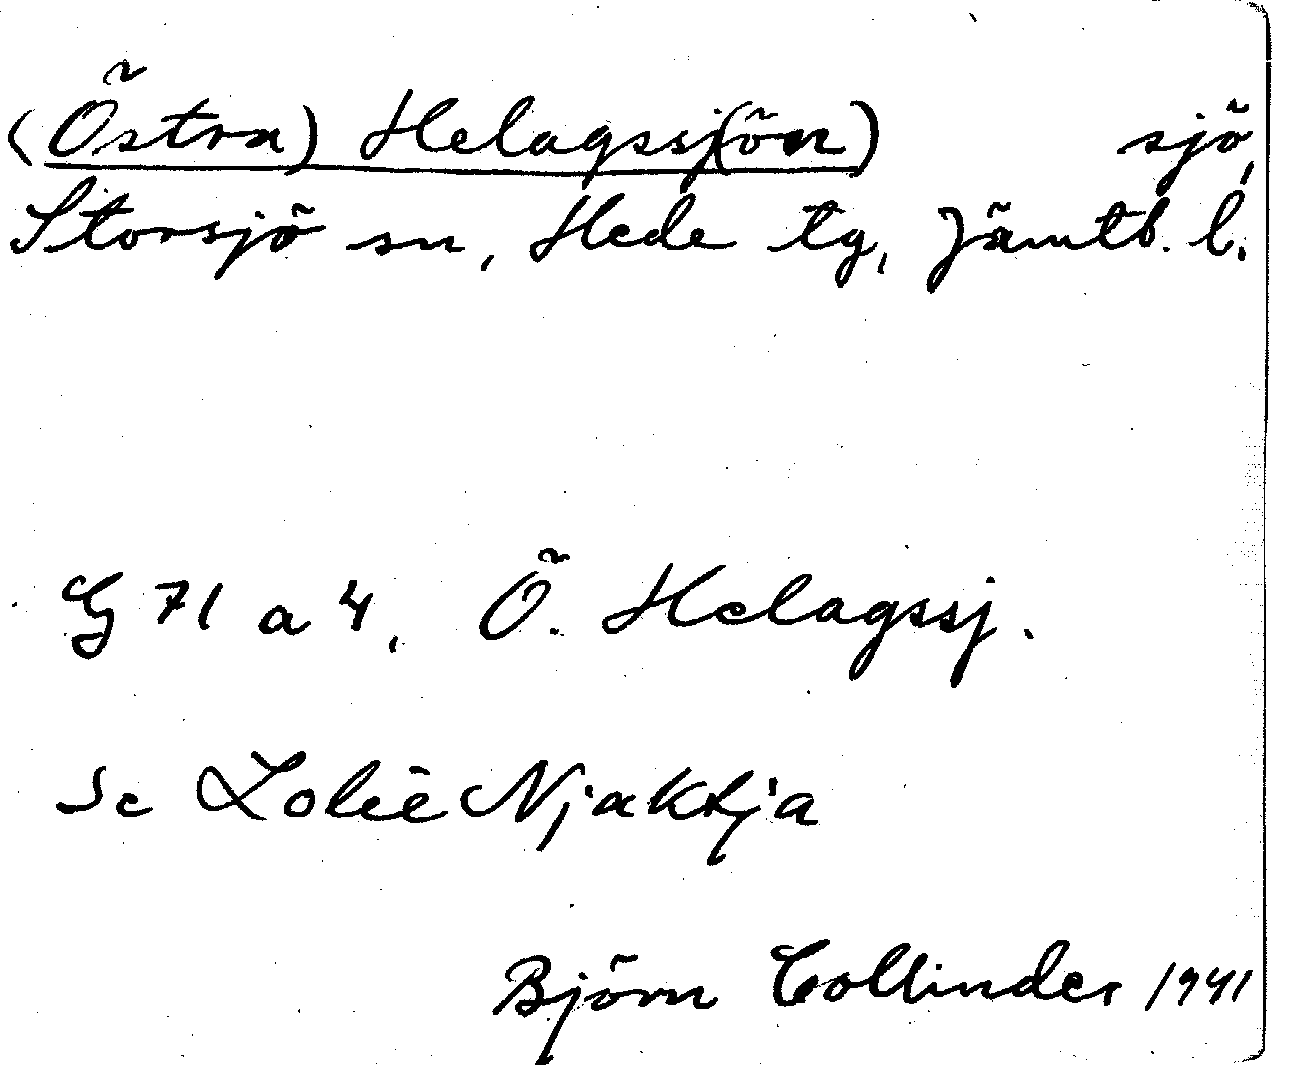 (Östra) Helagssj(ön) sjö,
Storsjö sn, Hede tg, Jämtl. l.
G 71 a 4, Ö. Helagssj.
Se Lolēē Njaktja
Björn Collinder 1941